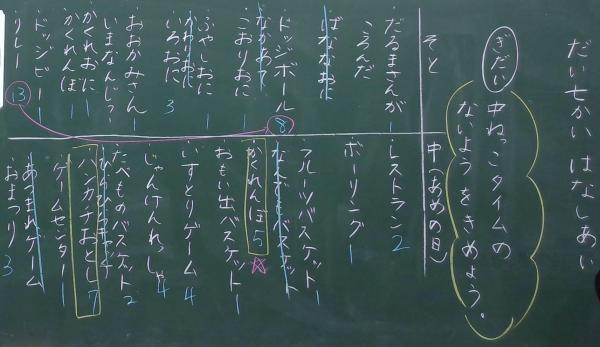 だい七かい はなしあい
ぎだい
中ねっこタイムの
ないようをきめよう。
そと
だるまさんが
ころんだ 1
ばななおに
ドッジボール 8
なかあて
こおりおに 1
ふやしおに 1
いろおに 3
おおかみさん
いまなんじ? 1
かくれおに 1
かくれんぼ 1
ドッジビー 1
リレー 13
中(あめの日)
レストラン 2
ボーリング 1
フルーツバスケット 1
なんでもバスケット
かくれんぼ 5
おもい出バスケット 1
いすとりゲーム 4
じゃんけんれっしゃ 4
たべものバスケット 2
ハンカチおとし 7
ゲームセンター 1
あつまれゲーム
おまつり 3